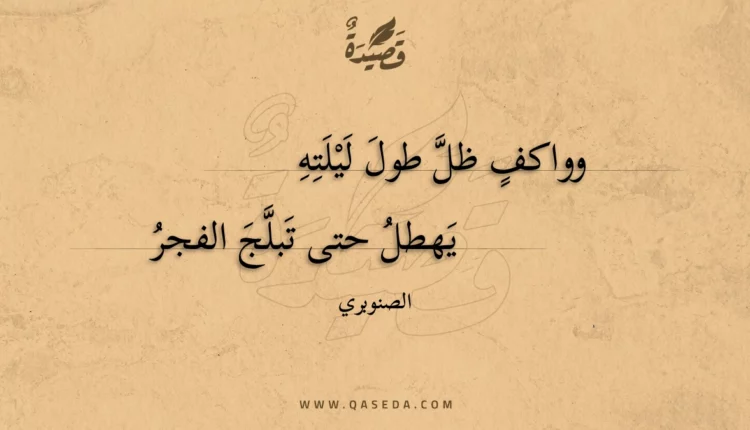 قَصِيْدَةٌ
وواكفٍ ظلَّ طولَ لَيْلَتِهِ
يَهطلُ حتى تَبلَّجَ الفجرُ
الصنوبري
WWW.QASEDA.COM